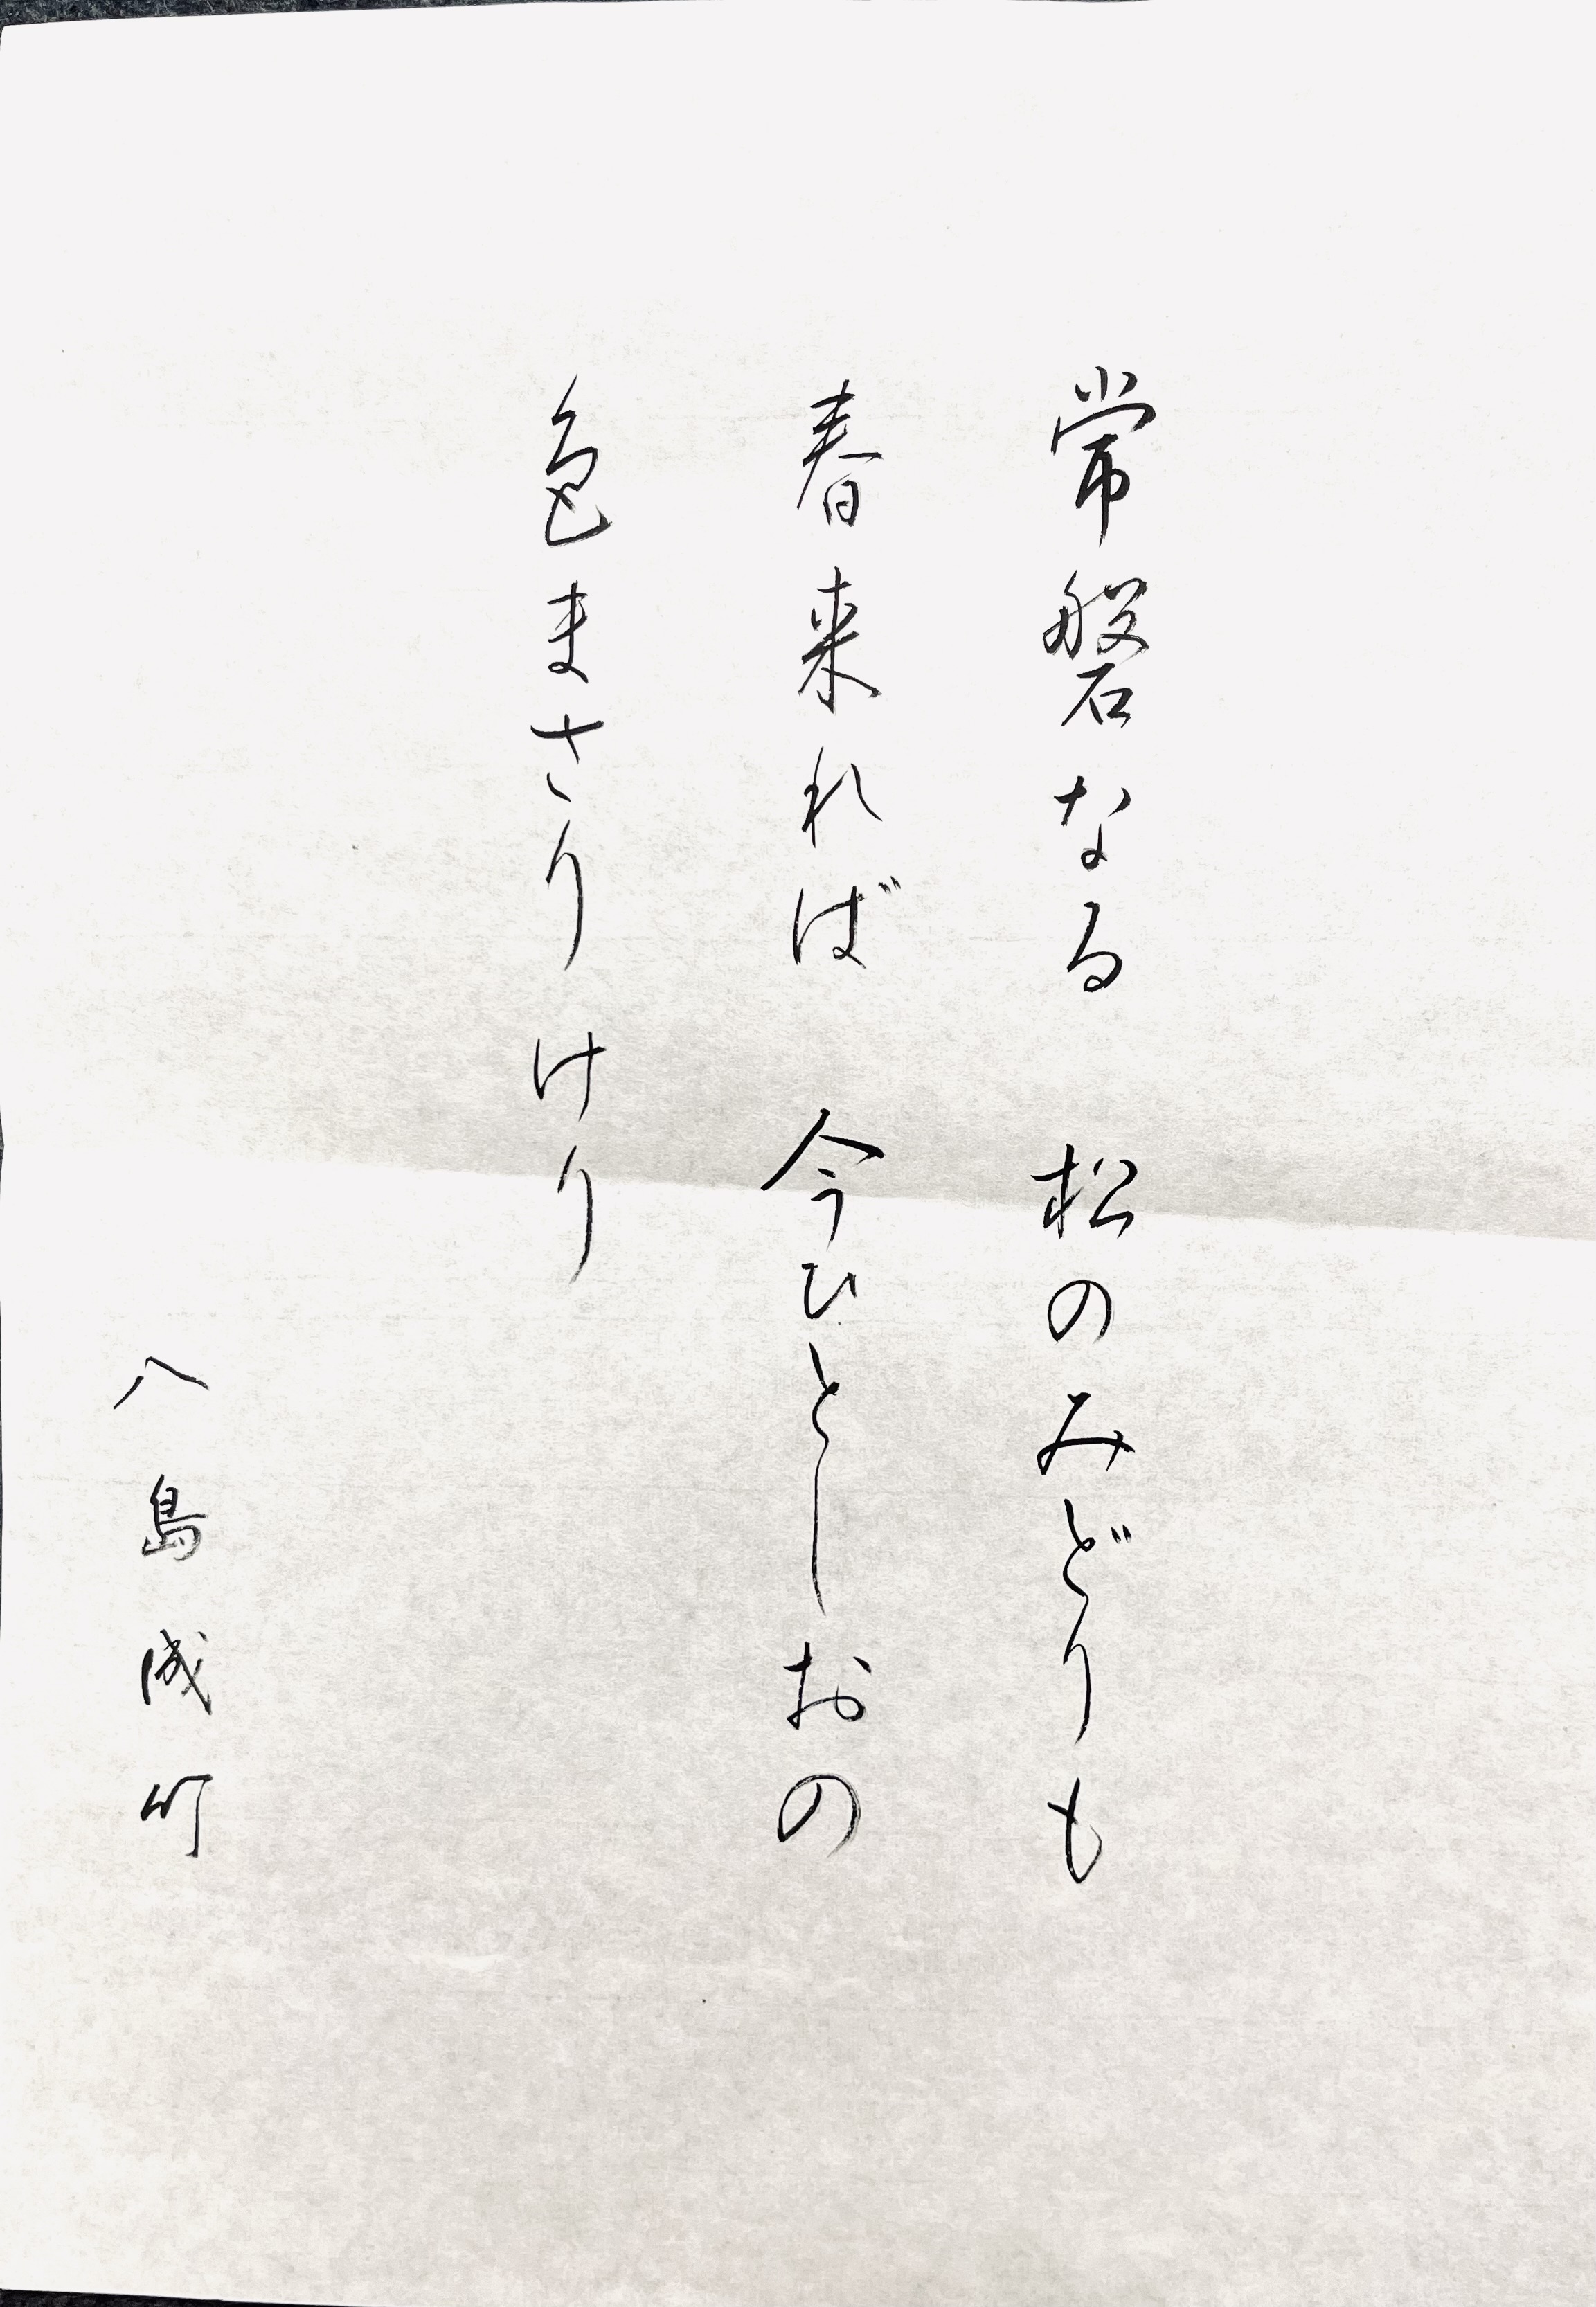 常磐なる 松のみどりも
春来れば 今ひとしおの
色まさりけり
八島成竹